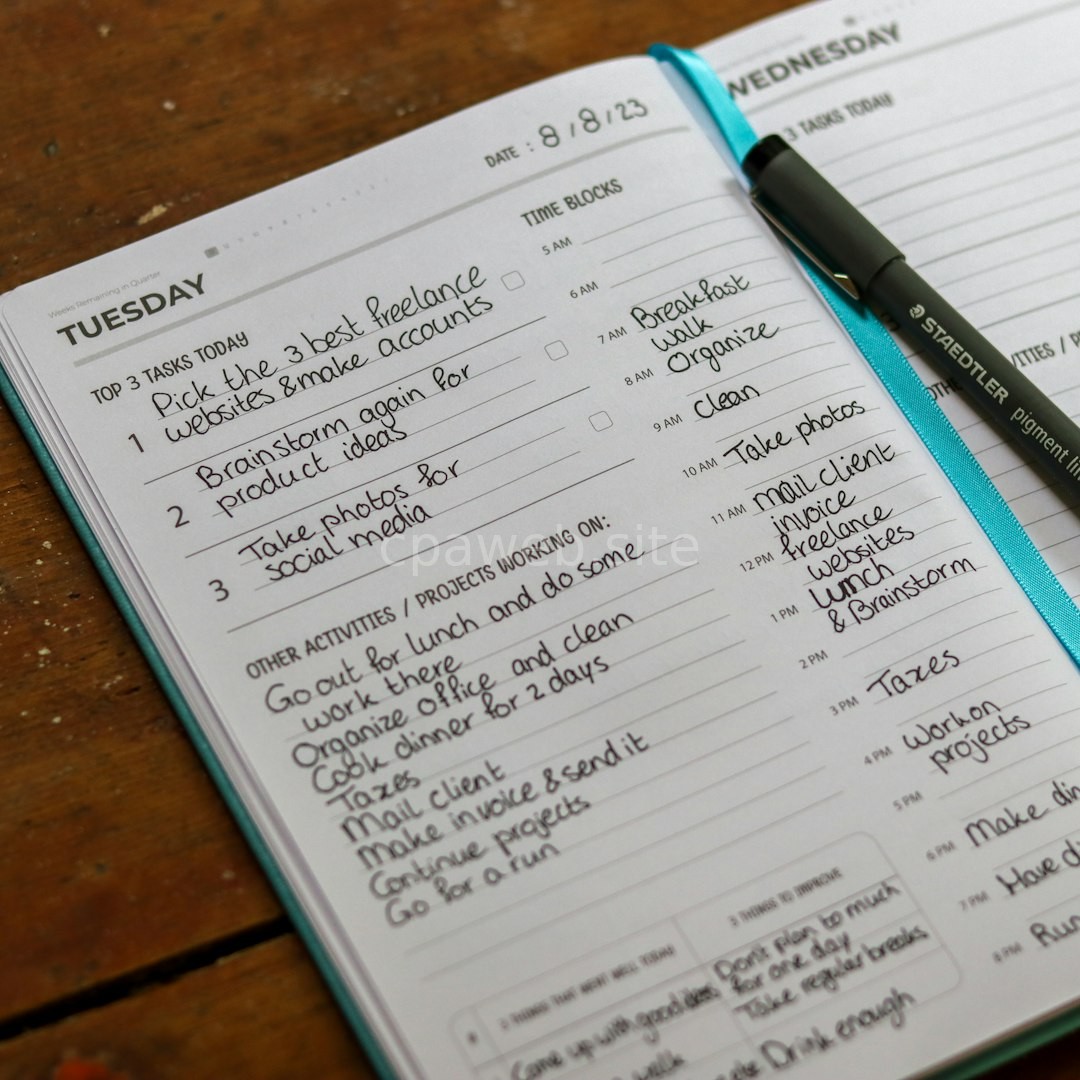 Weeks Remaining in Quarter
TUESDAY
DATE : 8 / 8 / 23
TOP 3 TASKS TODAY
1 Pick the 3 best freelance
websites & make accounts
2 Brainstorm again for
product ideas
3 Take photos for
social media
OTHER ACTIVITIES / PROJECTS WORKING ON:
Go out for lunch and do some
work there
Organize office and clean
Cook dinner for 2 days
Taxes
Mail client
Make invoice & send it
Continue projects
Go for a run
TIME BLOCKS
5 AM
6 AM
7 AM Breakfast
walk
8 AM Organize
9 AM Clean
10 AM Take photos
11 AM mail client
invoice
12 PM freelance
websites
1 PM Lunch
& Brainstorm
2 PM
3 PM Taxes
4 PM Work on
projects
5 PM
6 PM Make
7 PM Have
8 PM
3 THINGS THAT WENT WELL TODAY
Came up with good
walk
3 THINGS TO IMPROVE
Don't plan to much
for one day
Take regular breaks
Drink enough
WEDNESDAY
3 TASKS TODAY
STAEDTLER
pigment
cpaweb.site